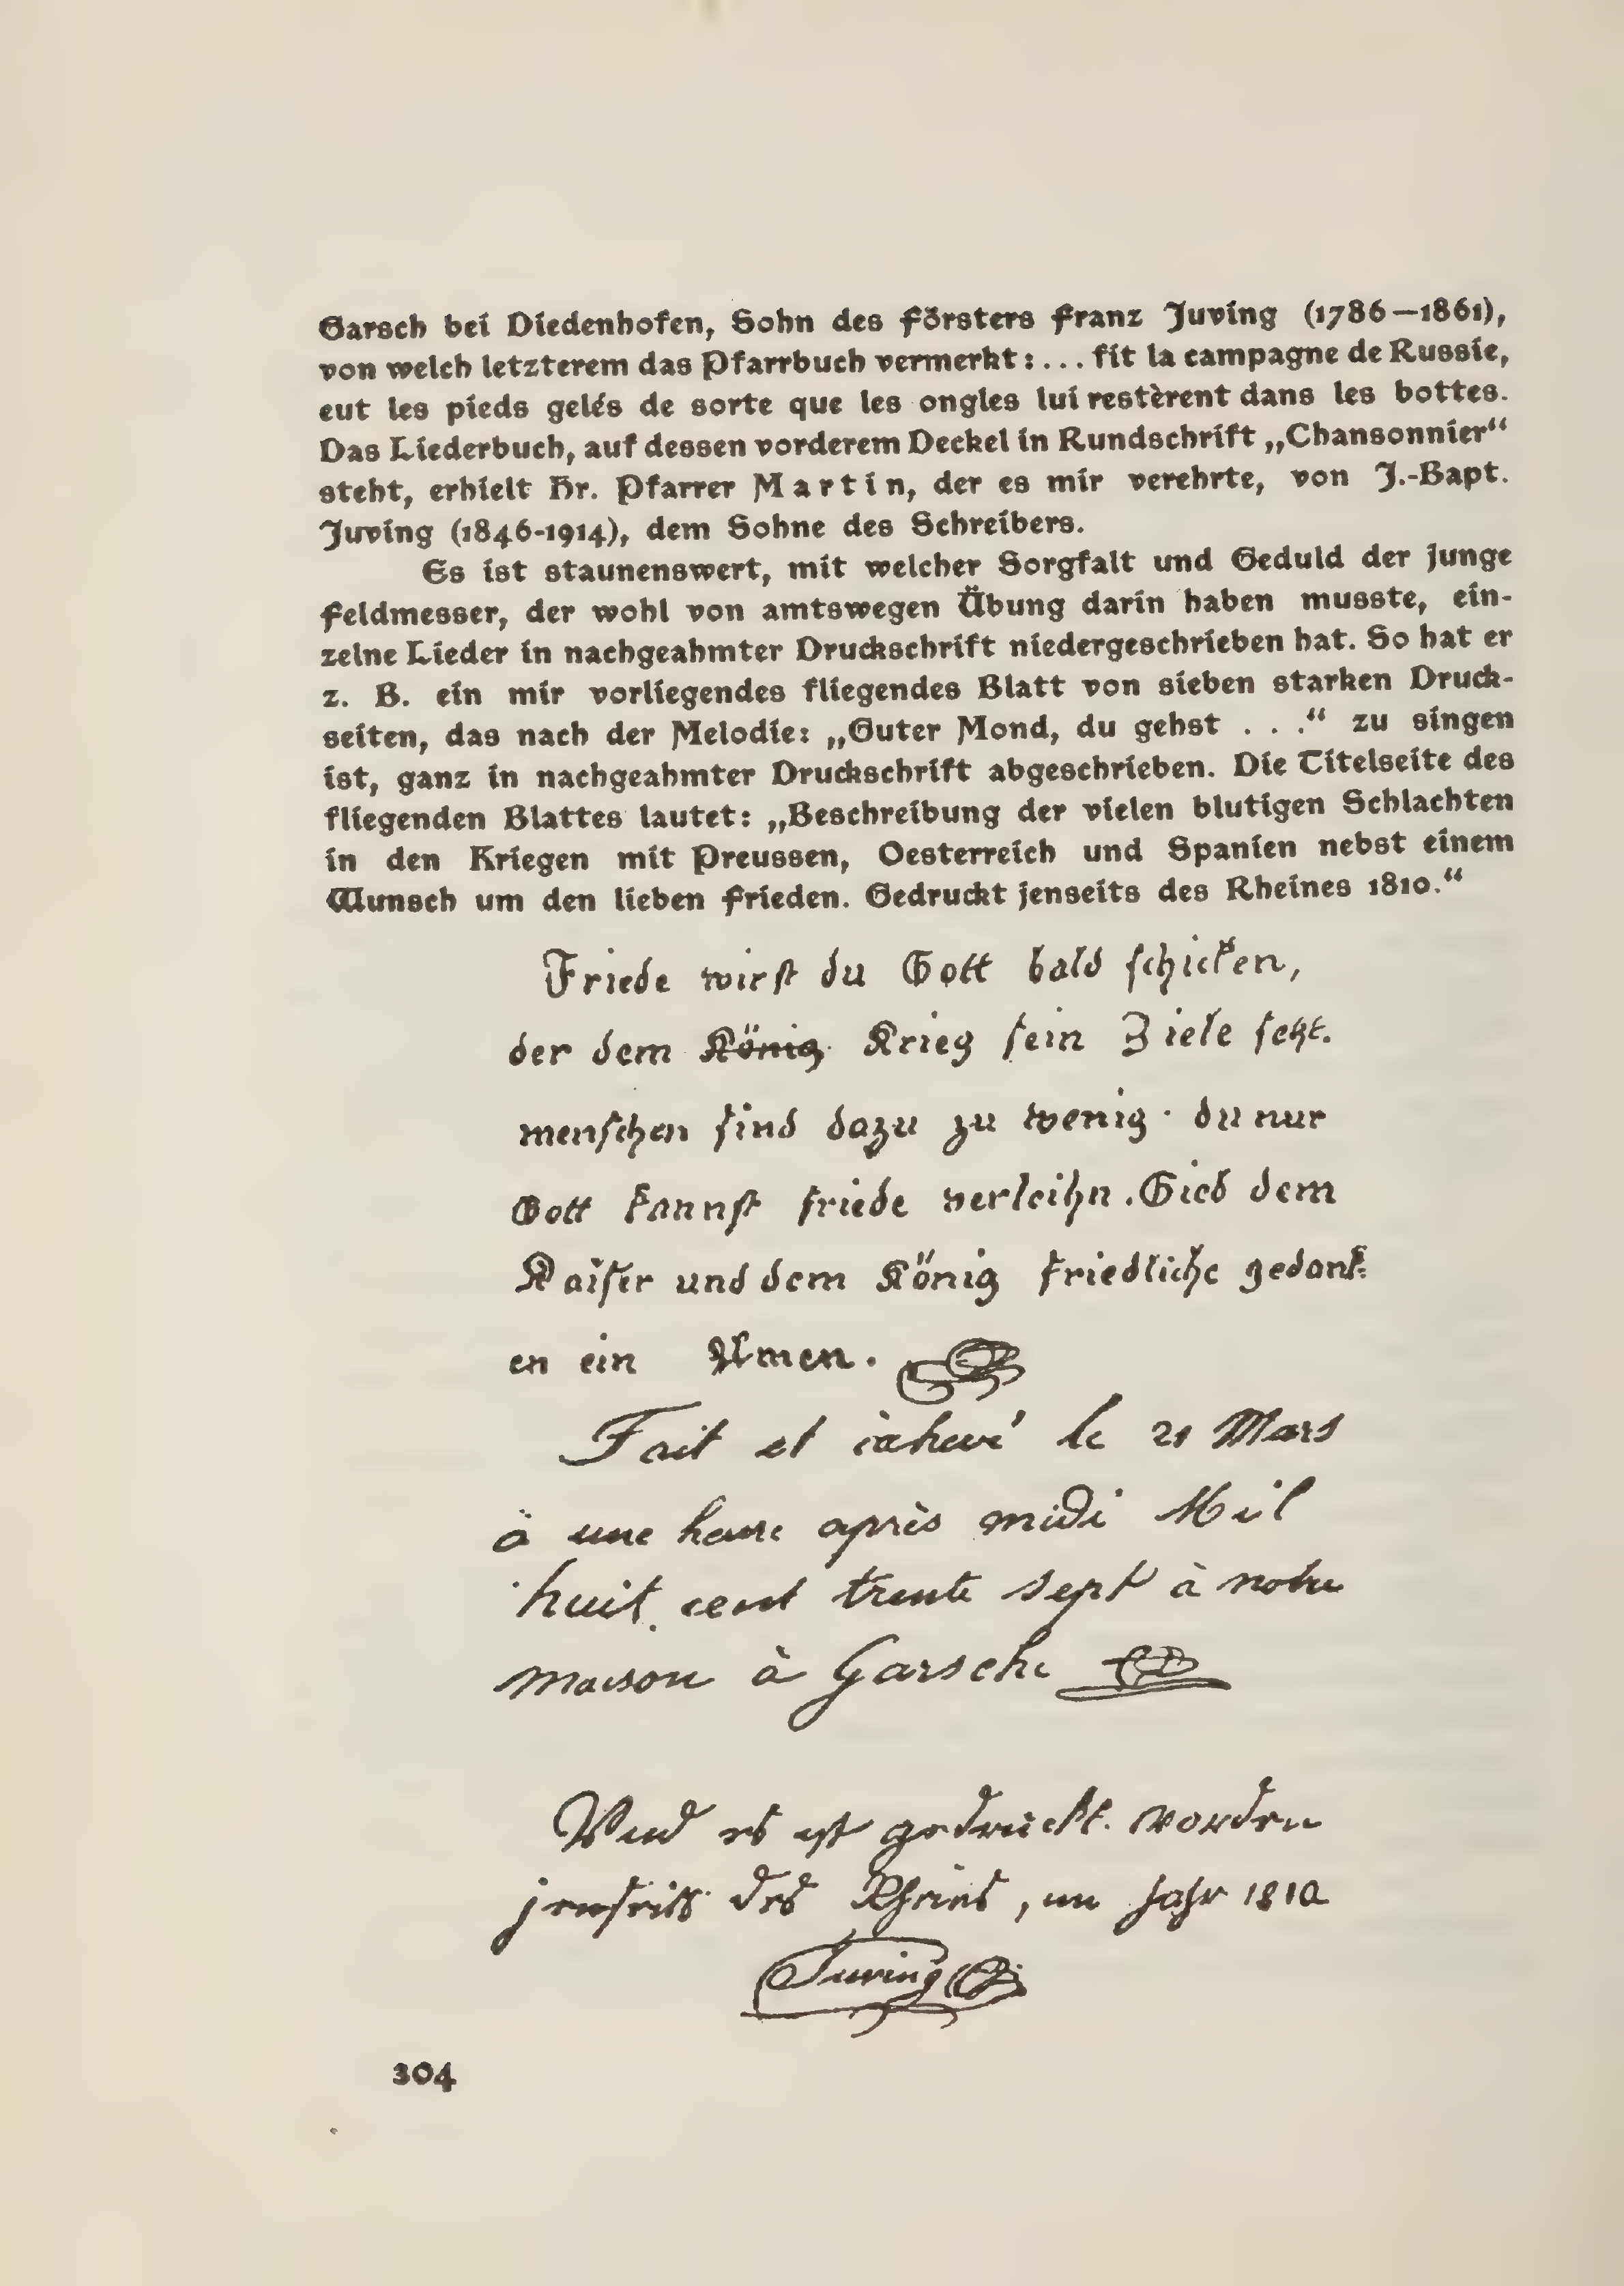 Garsch bei Diedenhofen, Sohn des Försters Franz Juving (1786—1861),
von welch letzterem das Pfarrbuch vermerkt: ... fit la campagne de Russie,
eut les pieds gelés de sorte que les ongles lui restèrent dans les bottes.
Das Liederbuch, auf dessen vorderem Deckel in Rundschrift „Chansonnier“
steht, erhielt Hr. Pfarrer Martin, der es mir verehrte, von J.-Bapt.
Juving (1846-1914), dem Sohne des Schreibers.
Es ist staunenswert, mit welcher Sorgfalt und Geduld der junge
Feldmesser, der wohl von amtswegen Übung darin haben musste, ein-
zelne Lieder in nachgeahmter Druckschrift niedergeschrieben hat. So hat er
z. B. ein mir vorliegendes fliegendes Blatt von sieben starken Druck-
seiten, das nach der Melodie: „Guter Mond, du gehst . . .“ zu singen
ist, ganz in nachgeahmter Druckschrift abgeschrieben. Die Titelseite des
fliegenden Blattes lautet: „Beschreibung der vielen blutigen Schlachten
in den Kriegen mit Preussen, Oesterreich und Spanien nebst einem
Wunsch um den lieben Frieden. Gedruckt jenseits des Rheines 1810.“
Friede wirst du Gott bald schicken,
der dem König Krieg sein Ziele setzt.
menschen sind dazu zu wenig. du nur
Gott kannst friede verleihn. Gieb dem
Kaiser und dem König friedliche gedank=
en ein Amen.
Fait et achevé le 21 Mars
à une heure après midi Mil
huit cent trente sept à notre
maison à Garsche
Und es ist gedruckt worden
jenseits des Rheins, im Jahr 1810
Juving
304